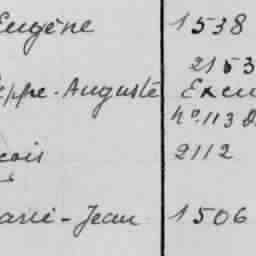 Eugène 1538
2153
ppe-Auguste Exem
nº 113 d
çois 2112
arie-Jean 1506